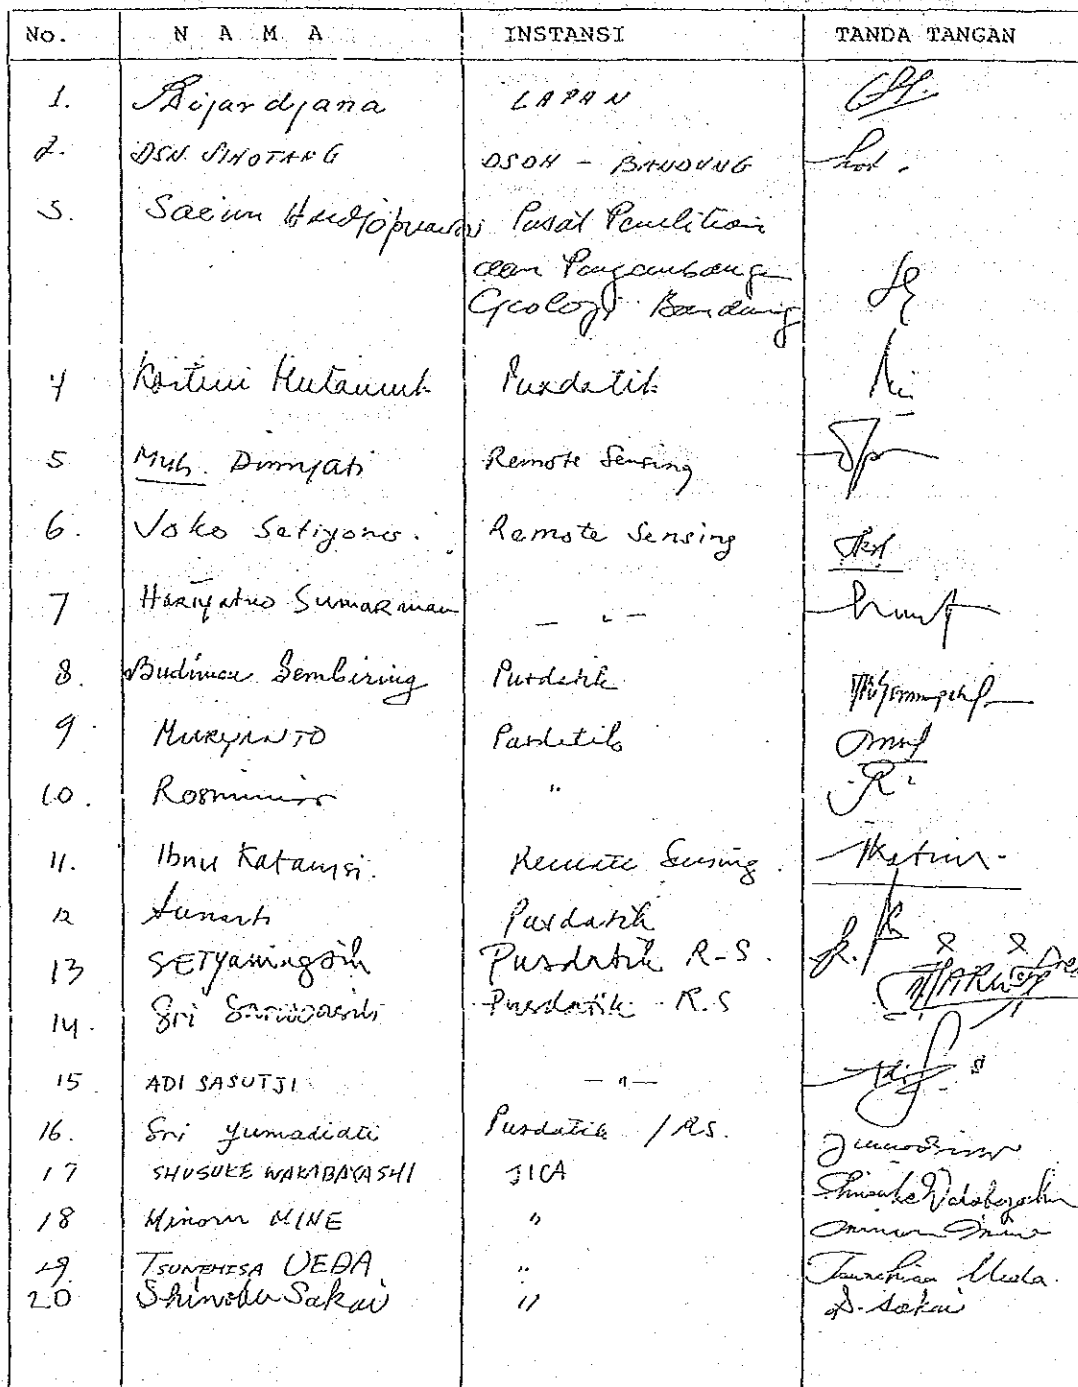 No. N A M A INSTANSI TANDA TANGAN
1. Bijardjana LAPAN
2. DSN. SINOTANG DSDH - BANDUNG
3. Saeun Pusat Penelitian
dan Pengembangan
Geologi Bandung
4 Hutauruk Pusdatik
5 Muh. Dimyati Remote Sensing
6. Joko Setiyono. Remote Sensing
7 Hariyatno Sumarman — " —
8. Budiman Sembiring Pusdatik
9. MURYANTO Pusdatik
10. "
11. Ibnu Katamsi. Remote Sensing.
12 Sunarti Pusdatik
13 SETyaningsih Pusdatik R-S.
14. Sri Pusdatik R.S
15. ADI SASUTJI — " —
16. Sri Yumadiati Pusdatik / RS.
17 SHUSUKE WAKABAYASHI JICA Shusuke Wakabayashi
18 Minoru MINE " Minoru Mine
19. TSUNEHISA UEDA " Tsunehisa Ueda.
20 Shinobu Sakai " S. Sakai